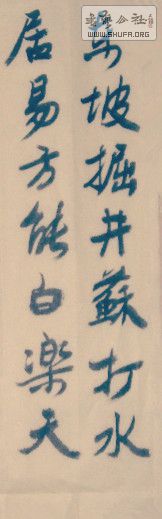 东坡掘井蘇打水
居易方能白楽天
公社
WWW.SHUFA.ORG